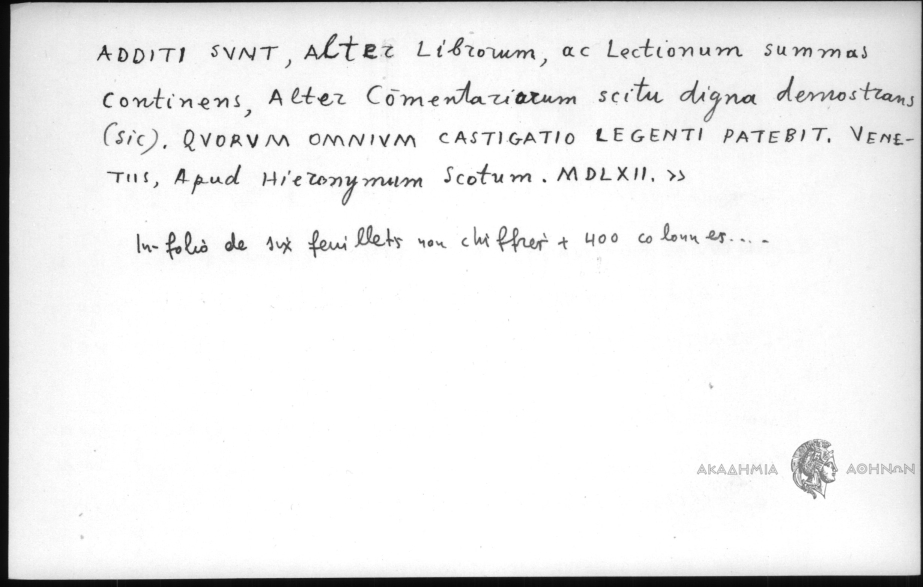 ADDITI SVNT, Alter Librorum, ac Lectionum summas
continens, Alter Cōmentariorum scitu digna demostrans
(sic). QVORVM OMNIVM CASTIGATIO LEGENTI PATEBIT. VENE-
TIIS, Apud Hieronymum Scotum. MDLXII. »
In-folio de six feuillets non chiffrés + 400 colonnes....
ΑΚΑΔΗΜΙΑ ΑΘΗΝΩΝ